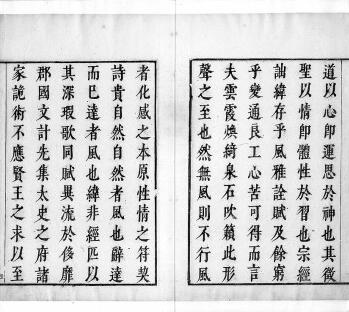 道以心卽運思於神也其徵
聖以情卽體性於習也宗經
詘緯存乎風雅詮賦及餘窮
乎變通良工心苦可得而言
夫雲霞煥綺泉石吹籟此形
聲之至也然無風則不行風
者化感之本原性情之符契
詩貴自然自然者風也辭達
而已達者風也緯非經匹以
其深瑕歌同賦異流於侈靡
郡國文計先集太史之府諸
家詭術不應賢王之求以至